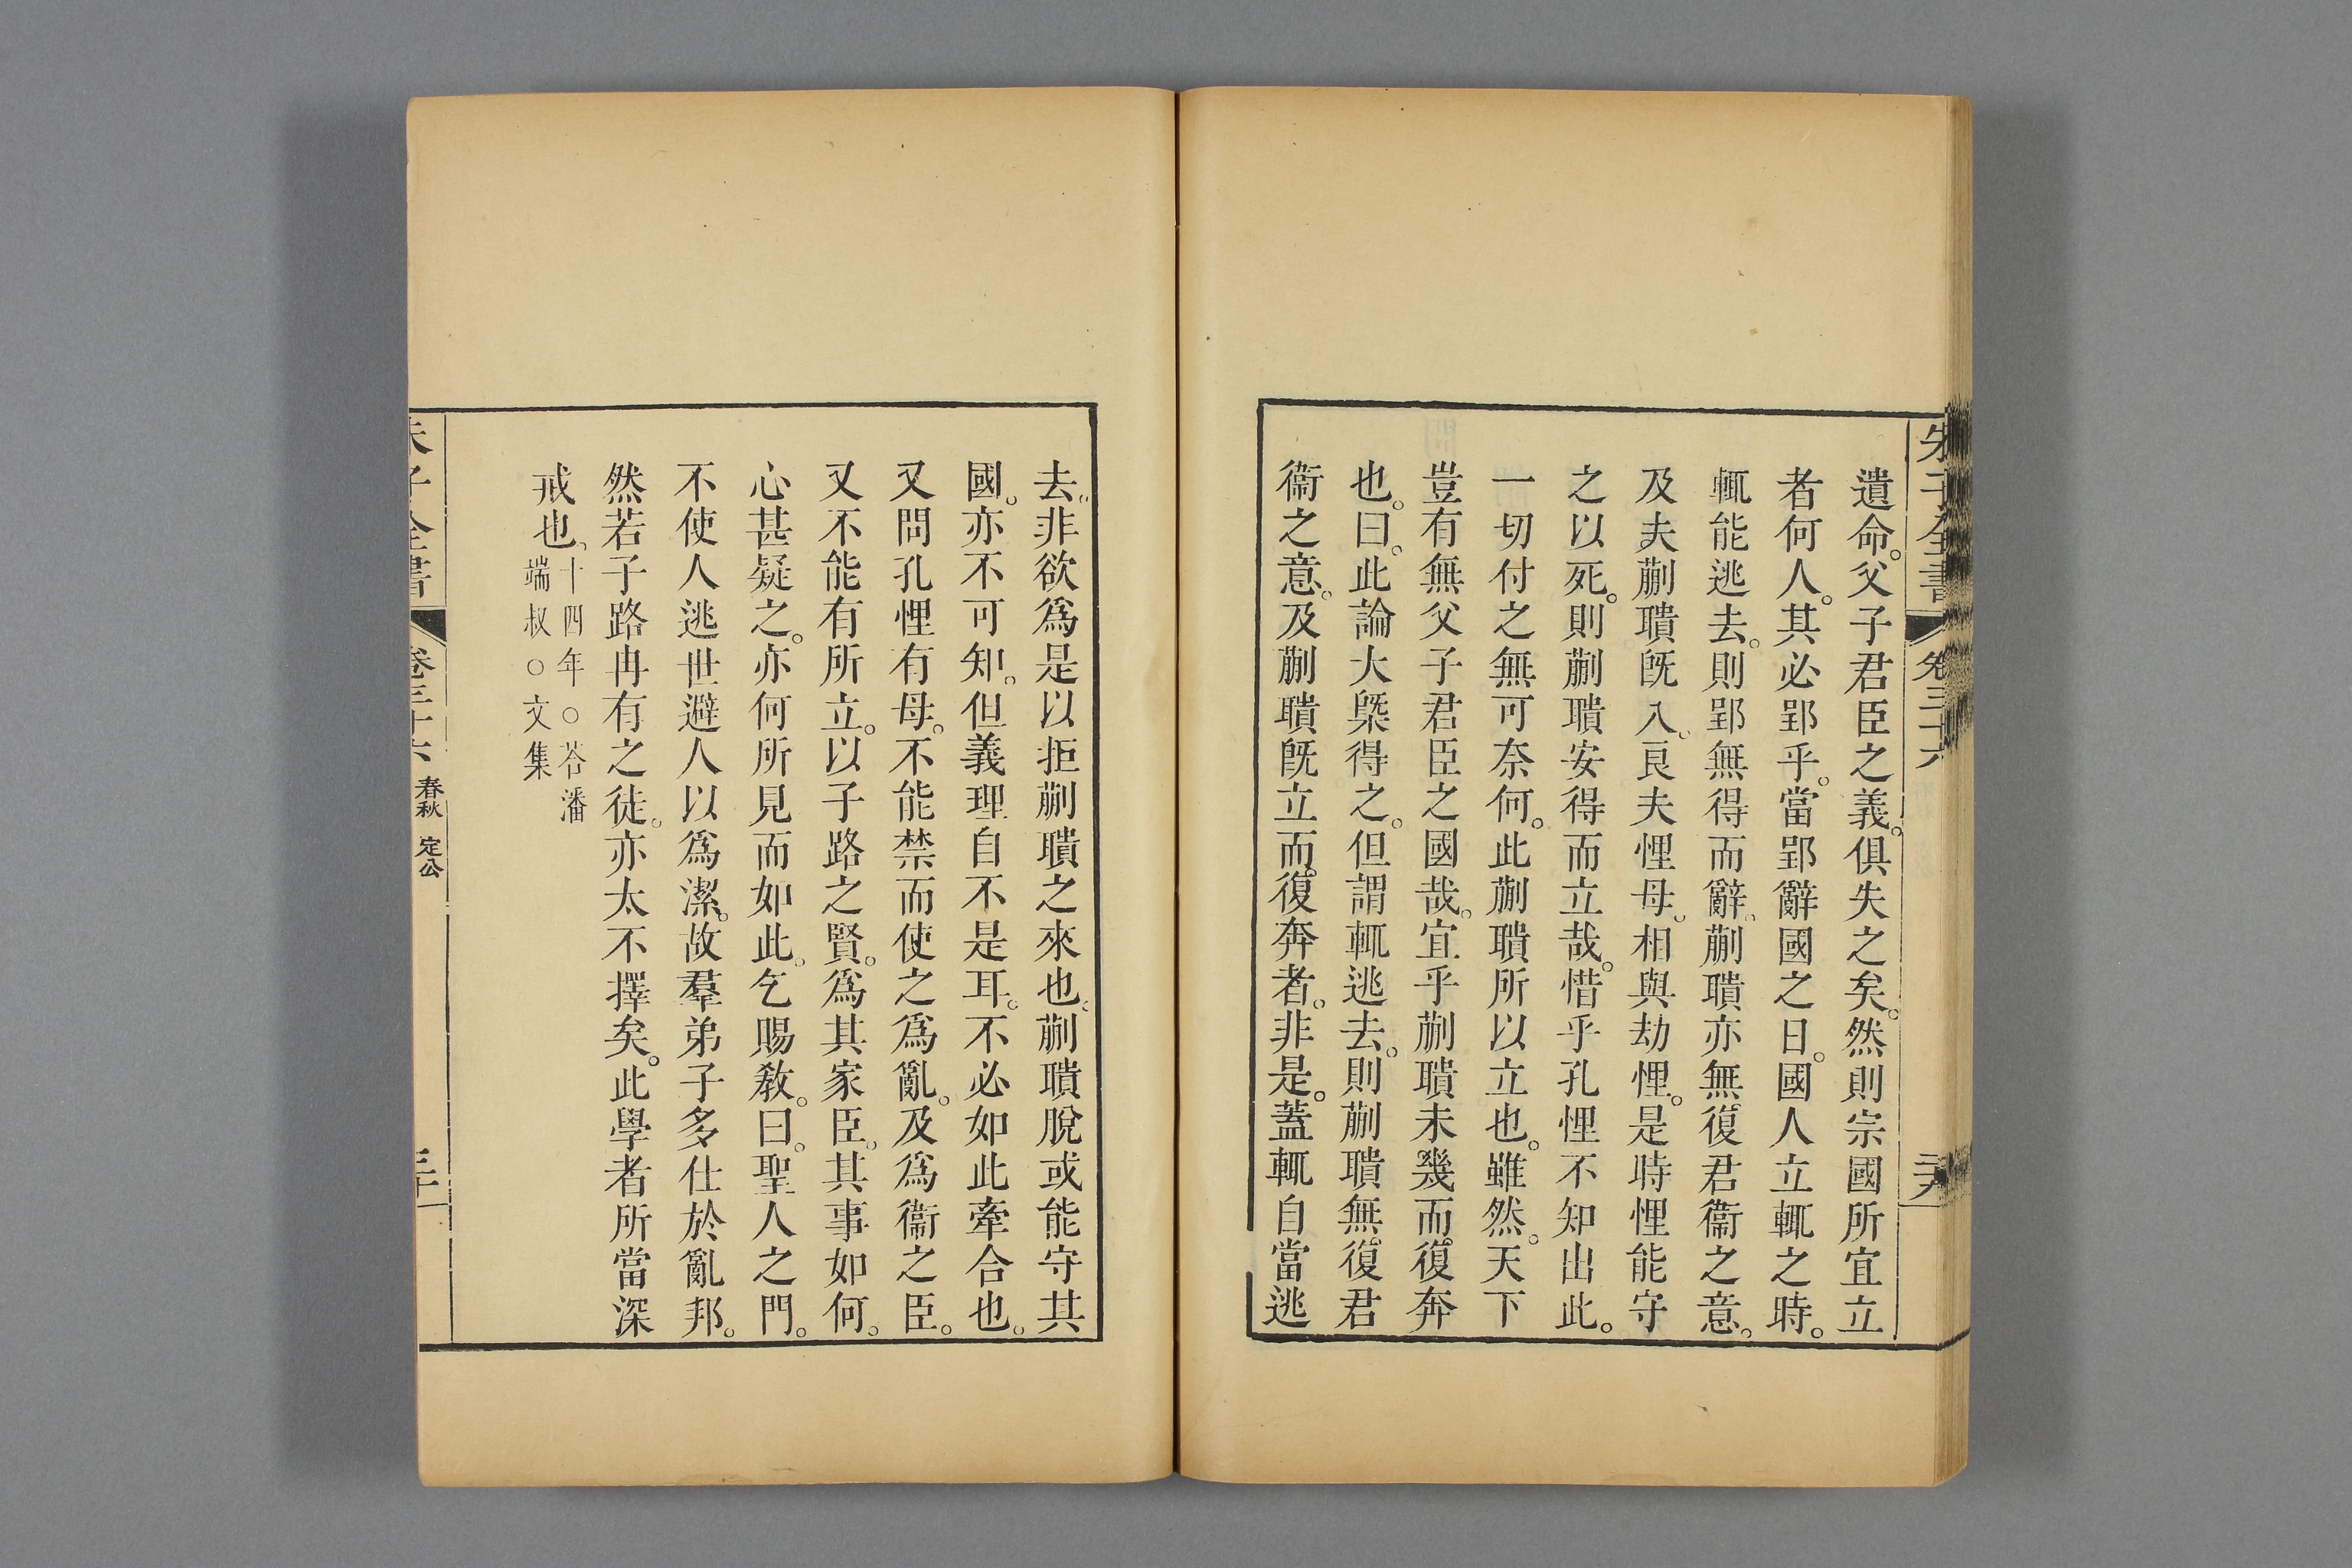 朱子全書 卷三十六 二十九
遺命。父子君臣之義。俱失之矣。然則宗國所宜立
者何人。其必郢乎。當郢辭國之日。國人立輒之時。
輒能逃去。則郢無得而辭。蒯聵亦無復君衞之意。
及夫蒯聵旣入。良夫悝母。相與劫悝。是時悝能守
之以死。則蒯聵安得而立哉。惜乎孔悝不知出此。
一切付之無可奈何。此蒯聵所以立也。雖然。天下
豈有無父子君臣之國哉。宜乎蒯聵未幾而復奔
也。曰。此論大槩得之。但謂輒逃去。則蒯聵無復君
衞之意。及蒯聵旣立而復奔者。非是。蓋輒自當逃
去。非欲爲是以拒蒯聵之來也。蒯聵脫或能守其
國。亦不可知。但義理自不是耳。不必如此牽合也。
又問孔悝有母。不能禁而使之爲亂。及爲衞之臣。
又不能有所立。以子路之賢。爲其家臣。其事如何。
心甚疑之。亦何所見而如此。乞賜敎。曰。聖人之門。
不使人逃世避人以爲潔。故羣弟子多仕於亂邦。
然若子路冉有之徒。亦太不擇矣。此學者所當深
戒也。十四年○荅潘
端叔○文集
朱子全書 卷三十六 春秋 定公 三十